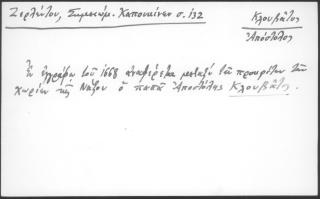 Ζερλέντου, Σημειώμ. Καπουκίνων σ. 132
Κλουβᾶτος
Ἀπόστολος
Ἐν ἐγγράφῳ τοῦ 1668 ἀναφέρεται μεταξὺ τῶν προκρίτων τῶν
χωρίων τῆς Νάξου ὁ παπᾶ Ἀποστόλης Κλουβᾶτος.